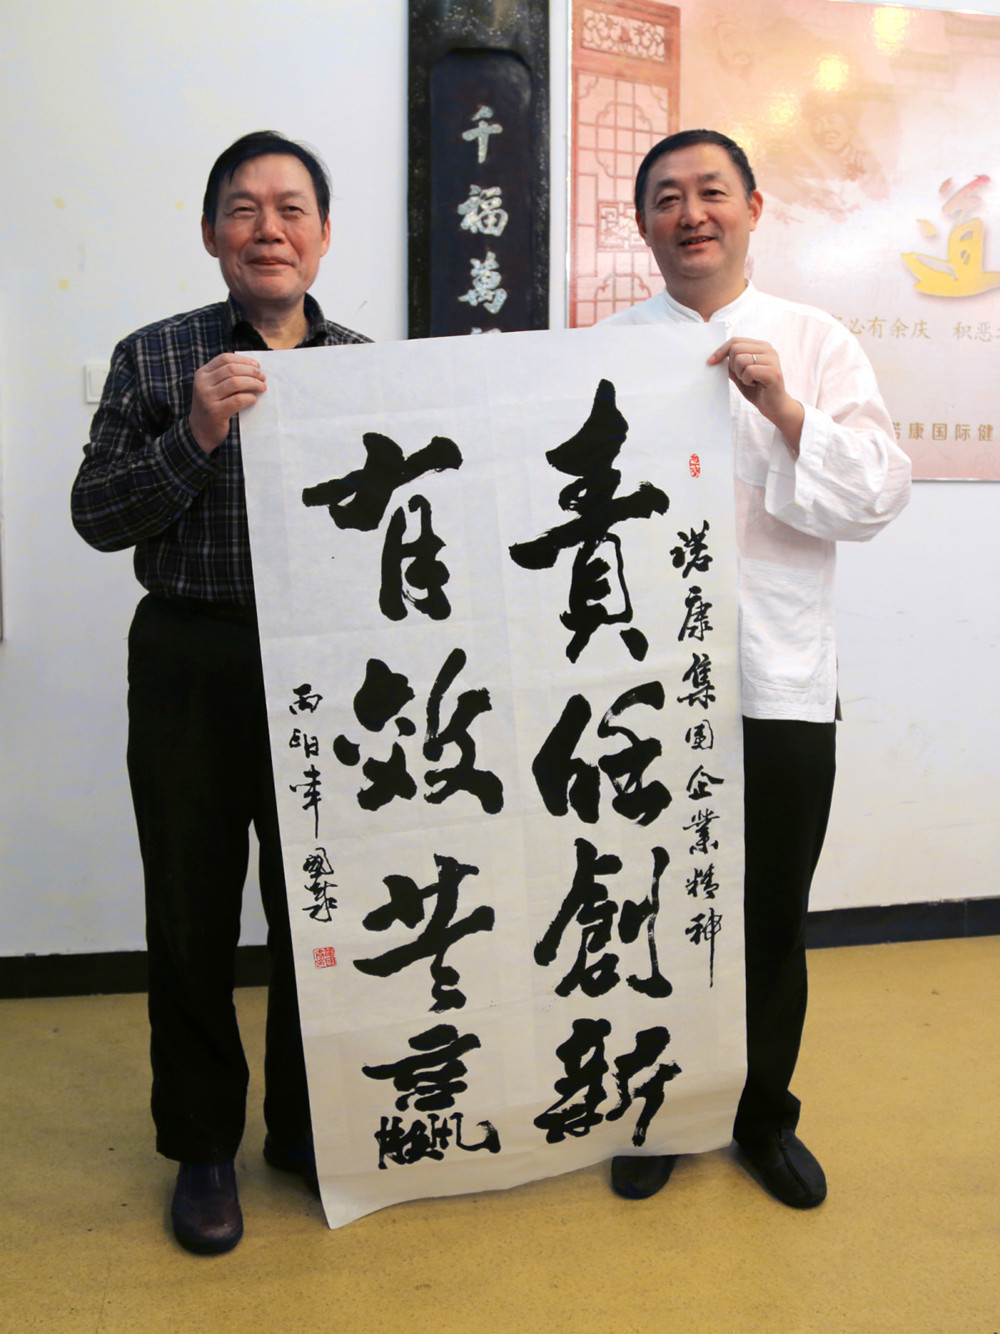 千福萬
道
必有余庆 积恶
诺康国际健
诺康集团企業精神
責任創新
有效共赢
丙申年